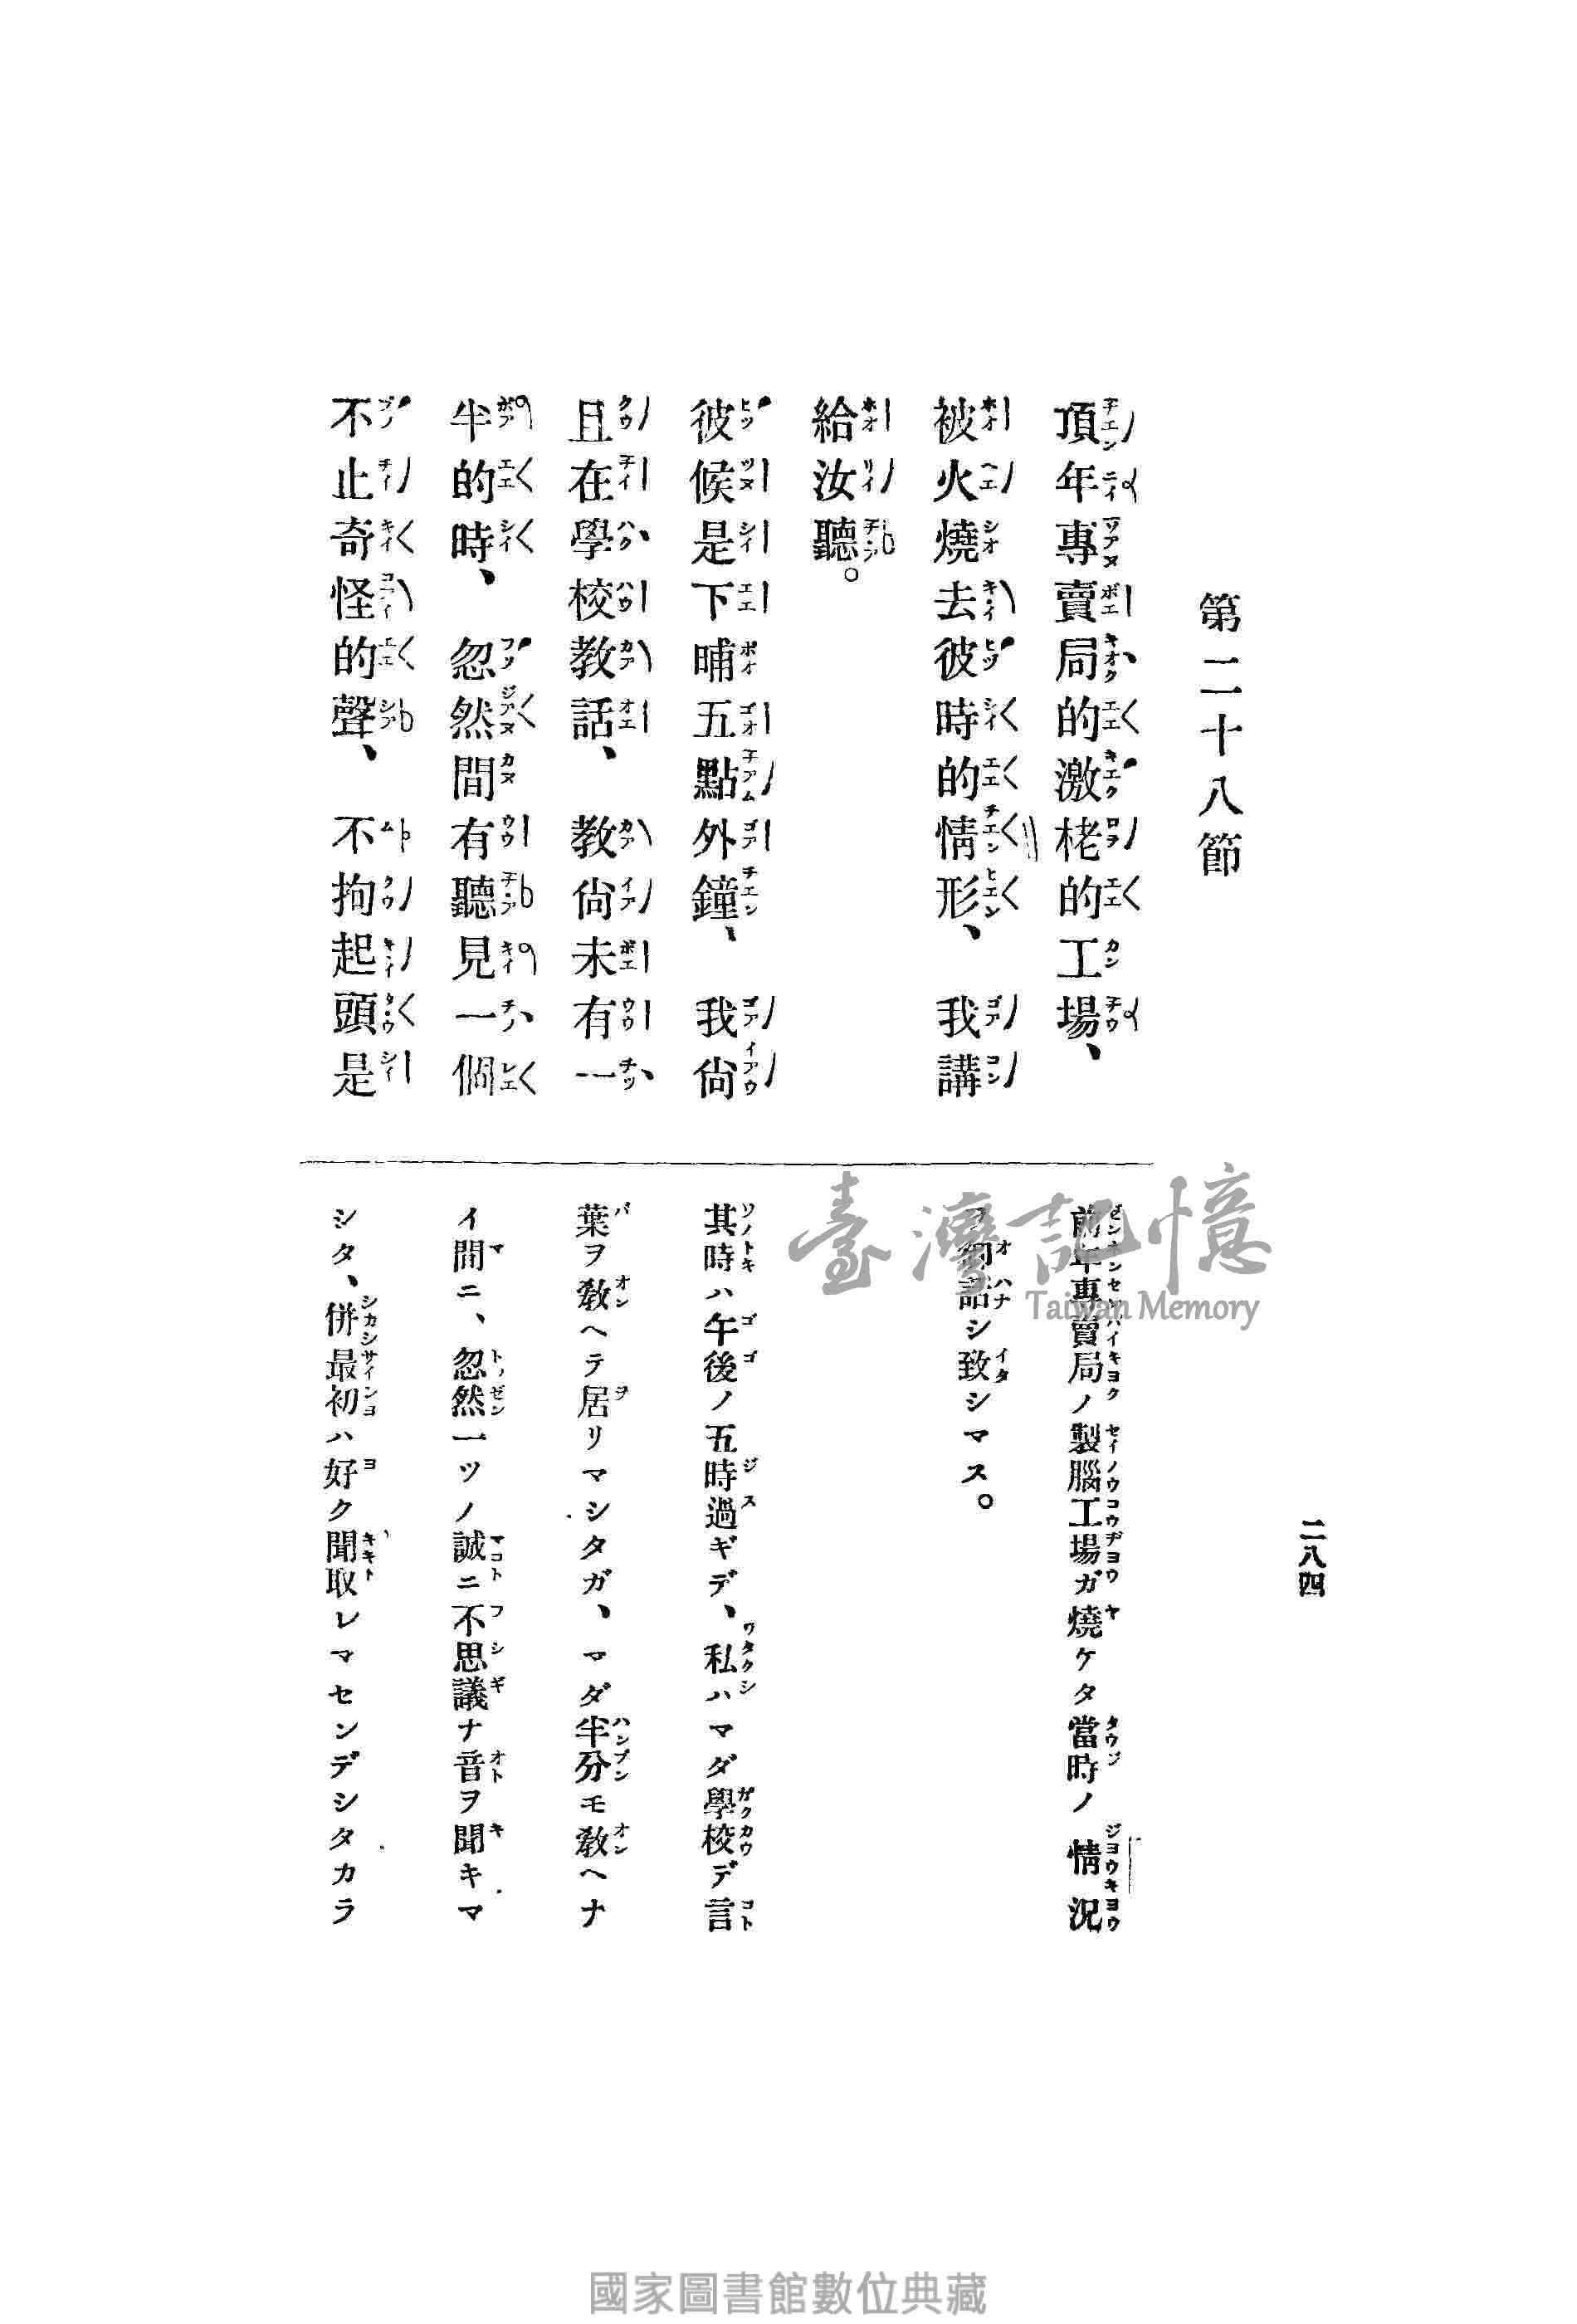 第二十八節
頂年專賣局的激栳的工場、
被火燒去彼時的情形、我講
給汝聽。
彼候是下晡五點外鐘、我尙
且在學校教話、教尙未有一
半的時、忽然間有聽見一個
不止奇怪的聲、不拘起頭是
前年專賣局ノ製腦工場ガ燒ケタ當時ノ情況
ヲ御話シ致シマス。
其時ハ午後ノ五時過ギデ、私ハマダ學校デ言
葉ヲ敎ヘテ居リマシタガ、マダ半分モ敎ヘナ
イ間ニ、忽然一ツノ誠ニ不思議ナ音ヲ聞キマ
シタ、併最初ハ好ク聞取レマセンデシタカラ
二八四
臺灣記憶
Taiwan Memory
國家圖書館數位典藏